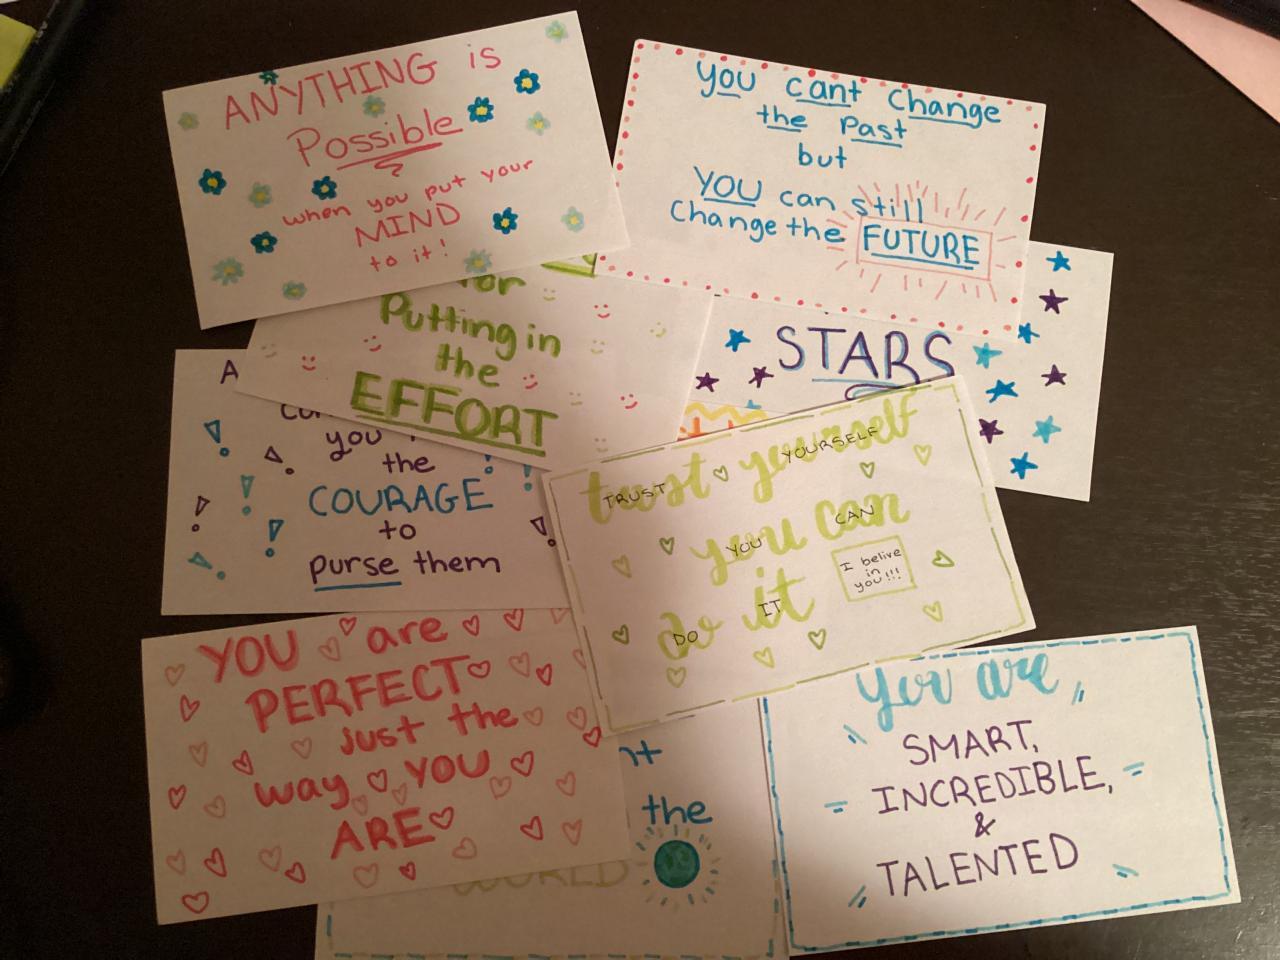 ANYTHING is
Possible
when you put your
MIND
to it!
you cant change
the Past
but
YOU can still
Change the FUTURE
for
Putting in
the
EFFORT
STARS
A
you
the
COURAGE
to
purse them
trust yourself
TRUST YOURSELF
you can
YOU CAN
do it
DO IT
I belive
in
you!!!
YOU are
PERFECT
just the
way YOU
ARE
the
WORLD
You are
SMART,
INCREDIBLE,
&
TALENTED